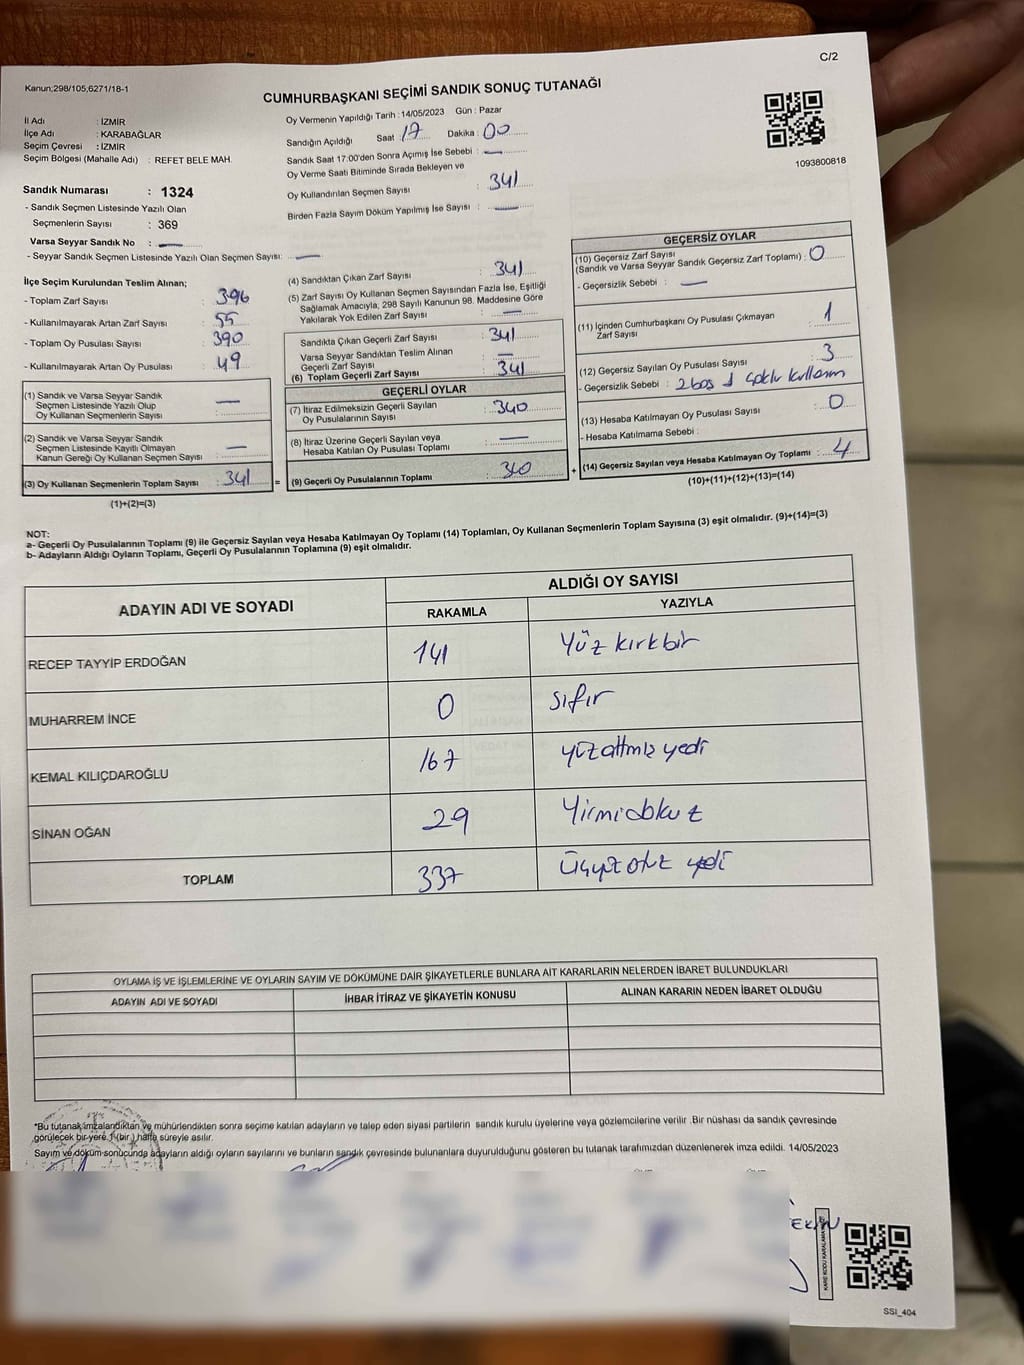 C/2
Kanun;298/105,6271/18-1
CUMHURBAŞKANI SEÇİMİ SANDIK SONUÇ TUTANAĞI
İl Adı : İZMİR
İlçe Adı : KARABAĞLAR
Seçim Çevresi : İZMİR
Seçim Bölgesi (Mahalle Adı) : REFET BELE MAH.
Sandık Numarası : 1324
- Sandık Seçmen Listesinde Yazılı Olan
Seçmenlerin Sayısı : 369
Varsa Seyyar Sandık No : —
- Seyyar Sandık Seçmen Listesinde Yazılı Olan Seçmen Sayısı: —
Oy Vermenin Yapıldığı Tarih : 14/05/2023 Gün : Pazar
Sandığın Açıldığı Saat 17 Dakika : 00
Sandık Saat 17:00'den Sonra Açımış İse Sebebi : —
Oy Verme Saati Bitiminde Sırada Bekleyen ve
Oy Kullandırılan Seçmen Sayısı : 341
Birden Fazla Sayım Döküm Yapılmış İse Sayısı : —
1093800818
İlçe Seçim Kurulundan Teslim Alınan;
- Toplam Zarf Sayısı : 396
- Kullanılmayarak Artan Zarf Sayısı : 55
- Toplam Oy Pusulası Sayısı : 390
- Kullanılmayarak Artan Oy Pusulası : 49
(1) Sandık ve Varsa Seyyar Sandık
Seçmen Listesinde Yazılı Olup
Oy Kullanan Seçmenlerin Sayısı : —
(2) Sandık ve Varsa Seyyar Sandık
Seçmen Listesinde Kayıtlı Olmayan
Kanun Gereği Oy Kullanan Seçmen Sayısı : —
(3) Oy Kullanan Seçmenlerin Toplam Sayısı : 341 =
(1)+(2)=(3)
(4) Sandıktan Çıkan Zarf Sayısı : 341
(5) Zarf Sayısı Oy Kullanan Seçmen Sayısından Fazla İse, Eşitliği
Sağlamak Amacıyla, 298 Sayılı Kanunun 98. Maddesine Göre
Yakılarak Yok Edilen Zarf Sayısı : —
Sandıkta Çıkan Geçerli Zarf Sayısı : 341
Varsa Seyyar Sandıktan Teslim Alınan
Geçerli Zarf Sayısı : —
(6) Toplam Geçerli Zarf Sayısı : 341
GEÇERLİ OYLAR
(7) İtiraz Edilmeksizin Geçerli Sayılan
Oy Pusulasının Sayısı : 340
(8) İtiraz Üzerine Geçerli Sayılan veya
Hesaba Katılan Oy Pusulası Toplamı : —
(9) Geçerli Oy Pusulalarının Toplamı : 340 +
GEÇERSİZ OYLAR
(10) Geçersiz Zarf Sayısı
(Sandık ve Varsa Seyyar Sandık Geçersiz Zarf Toplamı) : 0
- Geçersizlik Sebebi : —
(11) İçinden Cumhurbaşkanı Oy Pusulası Çıkmayan
Zarf Sayısı : 1
(12) Geçersiz Sayılan Oy Pusulası Sayısı : 3
- Geçersizlik Sebebi : 2 boş 1 çoklu kullanım
(13) Hesaba Katılmayan Oy Pusulası Sayısı : 0
- Hesaba Katılmama Sebebi :
(14) Geçersiz Sayılan veya Hesaba Katılmayan Oy Toplamı : 4
(10)+(11)+(12)+(13)=(14)
NOT:
a- Geçerli Oy Pusulalarının Toplamı (9) ile Geçersiz Sayılan veya Hesaba Katılmayan Oy Toplamı (14) Toplamları, Oy Kullanan Seçmenlerin Toplam Sayısına (3) eşit olmalıdır. (9)+(14)=(3)
b- Adayların Aldığı Oyların Toplamı, Geçerli Oy Pusulalarının Toplamına (9) eşit olmalıdır.
ADAYIN ADI VE SOYADI
ALDIĞI OY SAYISI
RAKAMLA YAZIYLA
RECEP TAYYİP ERDOĞAN 141 Yüz kırkbir
MUHARREM İNCE 0 sıfır
KEMAL KILIÇDAROĞLU 167 yüzaltmış yedi
SİNAN OĞAN 29 Yirmidokuz
TOPLAM 337 Üçyüz otuz yedi
OYLAMA İŞ VE İŞLEMLERİNE VE OYLARIN SAYIM VE DÖKÜMÜNE DAİR ŞİKAYETLERLE BUNLARA AİT KARARLARIN NELERDEN İBARET BULUNDUKLARI
ADAYIN ADI VE SOYADI İHBAR İTİRAZ VE ŞİKAYETİN KONUSU ALINAN KARARIN NEDEN İBARET OLDUĞU
*Bu tutanak imzalandıktan ve mühürlendikten sonra seçime katılan adayların ve talep eden siyasi partilerin sandık kurulu üyelerine veya gözlemcilerine verilir. Bir nüshası da sandık çevresinde
görülecek bir yere 1 (bir) hafta süreyle asılır.
Sayım ve döküm sonucunda adayların aldığı oyların sayılarını ve bunların sandık çevresinde bulunanlara duyurulduğunu gösteren bu tutanak tarafımızdan düzenlenerek imza edildi. 14/05/2023
SSI_404